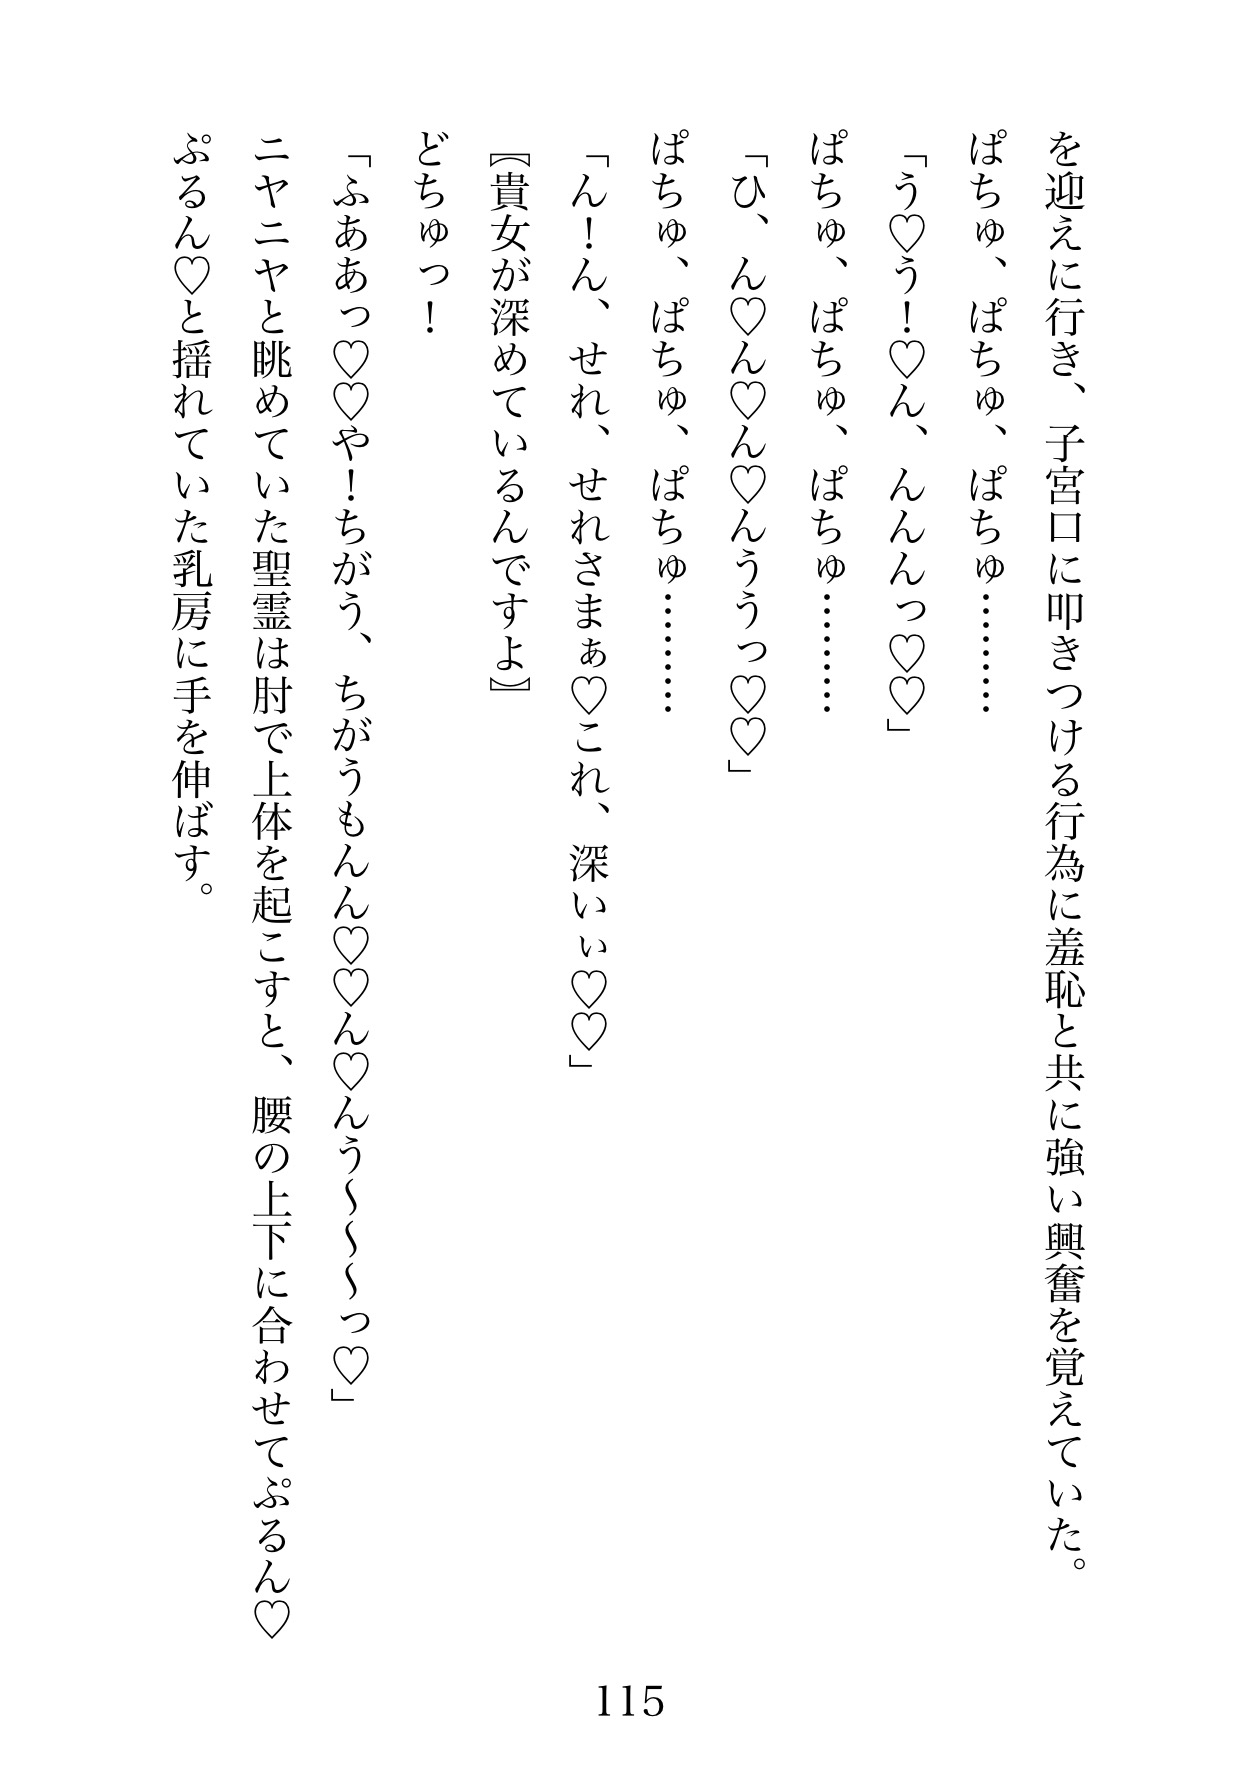 を迎えに行き、子宮口に叩きつける行為に羞恥と共に強い興奮を覚えていた。
ぱちゅ、ぱちゅ、ぱちゅ………
「う♡う！♡ん、んんんっ♡♡」
ぱちゅ、ぱちゅ、ぱちゅ………
「ひ、ん♡ん♡ん♡んううっ♡♡」
ぱちゅ、ぱちゅ、ぱちゅ………
「ん！ん、せれ、せれさまぁ♡これ、深いぃ♡♡」
〖貴女が深めているんですよ〗
どちゅっ！
「ふああっ♡♡や！ちがう、ちがうもんん♡♡ん♡んう～～～っ♡」
ニヤニヤと眺めていた聖霊は肘で上体を起こすと、腰の上下に合わせてぷるん♡
ぷるん♡と揺れていた乳房に手を伸ばす。
115